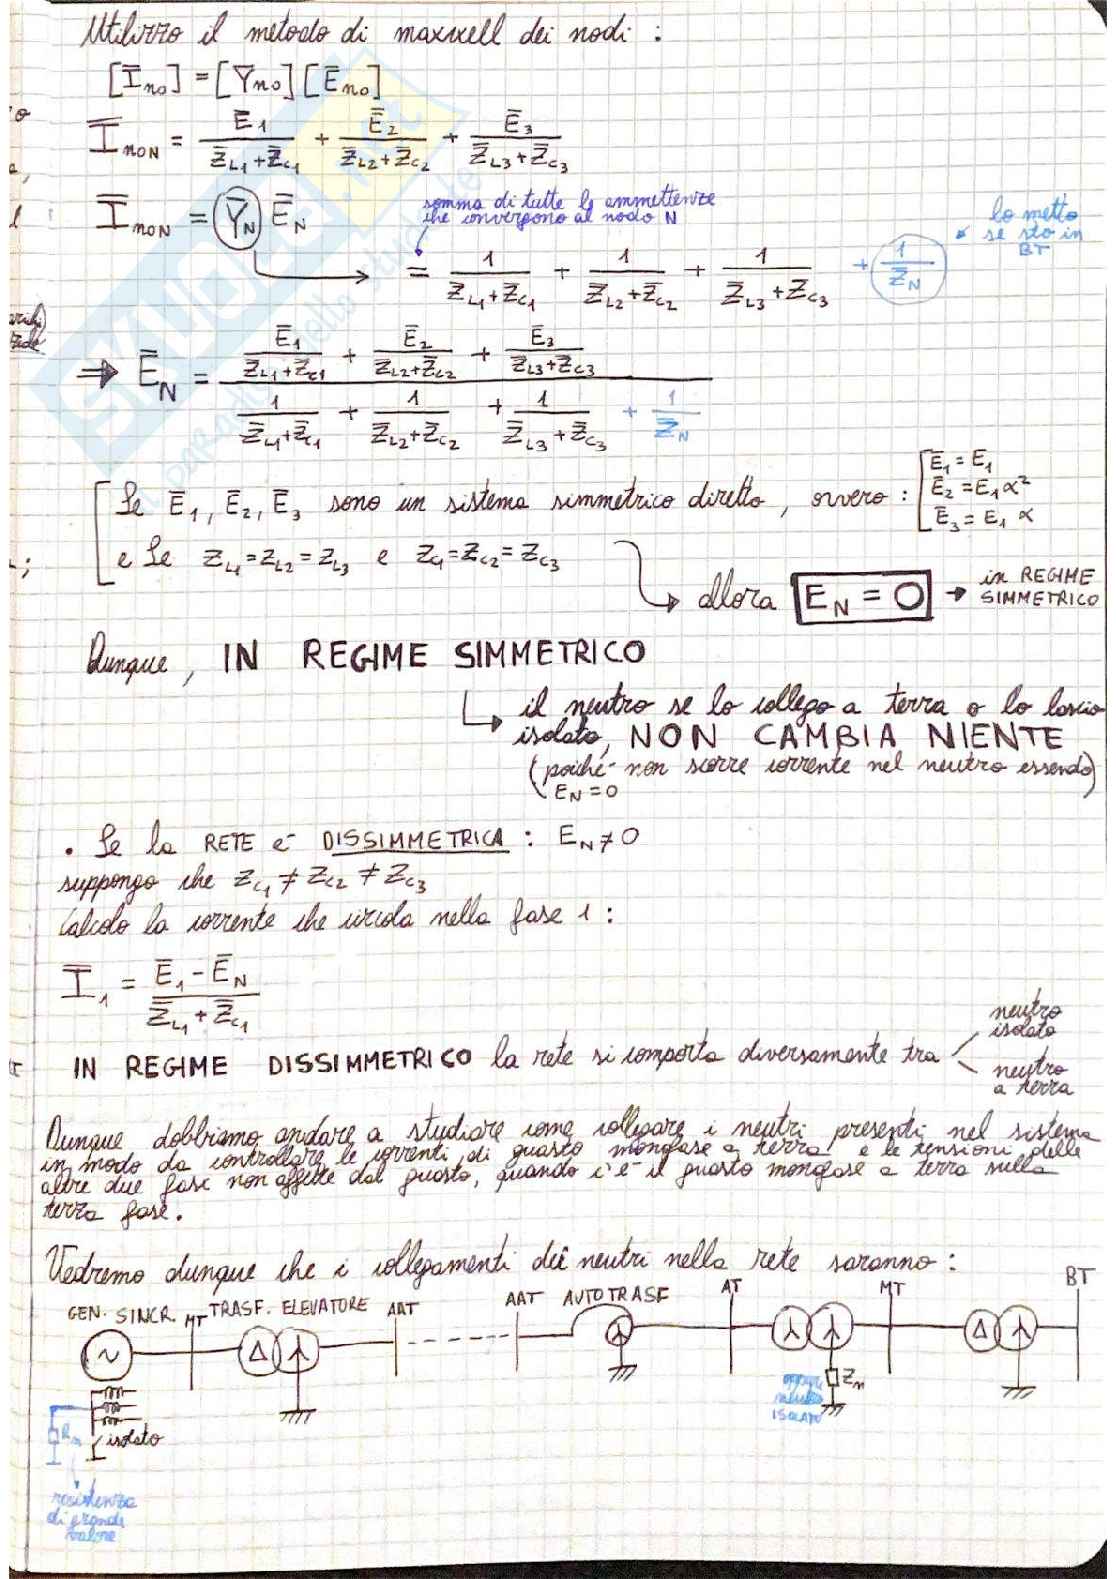 Utilizzo il metodo di maxwell dei nodi :
[I̅no] = [Y̅no] [E̅no]
I̅noN = E̅1/(Z̅L1+Z̅C1) + E̅2/(Z̅L2+Z̅C2) + E̅3/(Z̅L3+Z̅C3)
I̅noN = Y̅N E̅N
somma di tutte le ammettenze
che convergono al nodo N
= 1/(Z̅L1+Z̅C1) + 1/(Z̅L2+Z̅C2) + 1/(Z̅L3+Z̅C3) + 1/Z̅N
lo metto
se sto in
BT
⇒ E̅N = (E̅1/(Z̅L1+Z̅C1) + E̅2/(Z̅L2+Z̅C2) + E̅3/(Z̅L3+Z̅C3)) / (1/(Z̅L1+Z̅C1) + 1/(Z̅L2+Z̅C2) + 1/(Z̅L3+Z̅C3) + 1/Z̅N)
Se E̅1, E̅2, E̅3 sono un sistema simmetrico diretto, ovvero :
E̅1 = E1
E̅2 = E1 α²
E̅3 = E1 α
e Se ZL1=ZL2=ZL3 e ZC1=ZC2=ZC3
allora EN = 0 → in REGIME
SIMMETRICO
Dunque, IN REGIME SIMMETRICO
il neutro se lo collego a terra o lo lascio
isolato, NON CAMBIA NIENTE
(poiché non scorre corrente nel neutro essendo)
EN = 0
• Se la RETE è DISSIMMETRICA : EN ≠ 0
suppongo che ZC1 ≠ ZC2 ≠ ZC3
Calcolo la corrente che circola nella fase 1 :
I̅1 = (E̅1 - E̅N)/(Z̅L1 + Z̅C1)
IN REGIME DISSIMMETRICO la rete si comporta diversamente tra
neutro
isolato
neutro
a terra
Dunque dobbiamo andare a studiare come collegare i neutri presenti nel sistema
in modo da controllare le correnti di guasto monofase a terra e le tensioni delle
altre due fasi non affette dal guasto, quando c'è il guasto monofase a terra sulla
terza fase.
Vedremo dunque che i collegamenti dei neutri nella rete saranno :
GEN. SINCR. MT TRASF. ELEVATORE AAT AAT AUTOTRASF AT MT BT
Zn
oppure
neutro
ISOLATO
Rn
isolato
resistenza
di grande
valore
SKUOLA.net
il paradiso dello studente